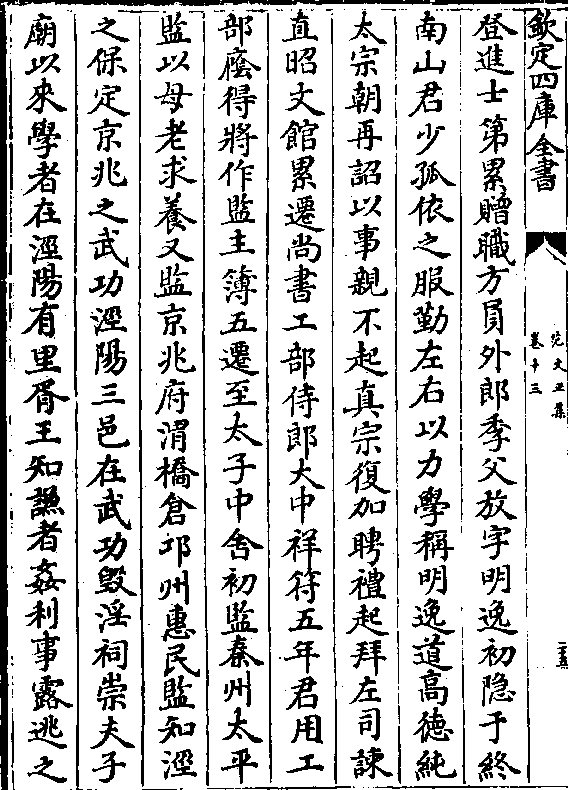 欽定四庫全書
登進士第累贈職方員外郎季父放字明逸初隐于終
南山君少孤依之服勤左右以力學稱明逸道高德純
太宗朝再詔以事親不起真宗復加聘禮起拜左司諫
直昭文館累遷尚書工部侍郎大中祥符五年君用工
部廕得將作監主簿五遷至太子中舍初監秦州太平
監以母老求養又監京兆府渭橋倉邛州惠民監知涇
之保定京兆之武功涇陽三邑在武功毁淫祠崇夫子
廟以來學者在涇陽有里胥王知謙者姦利事露逃之
范文正集
卷十三